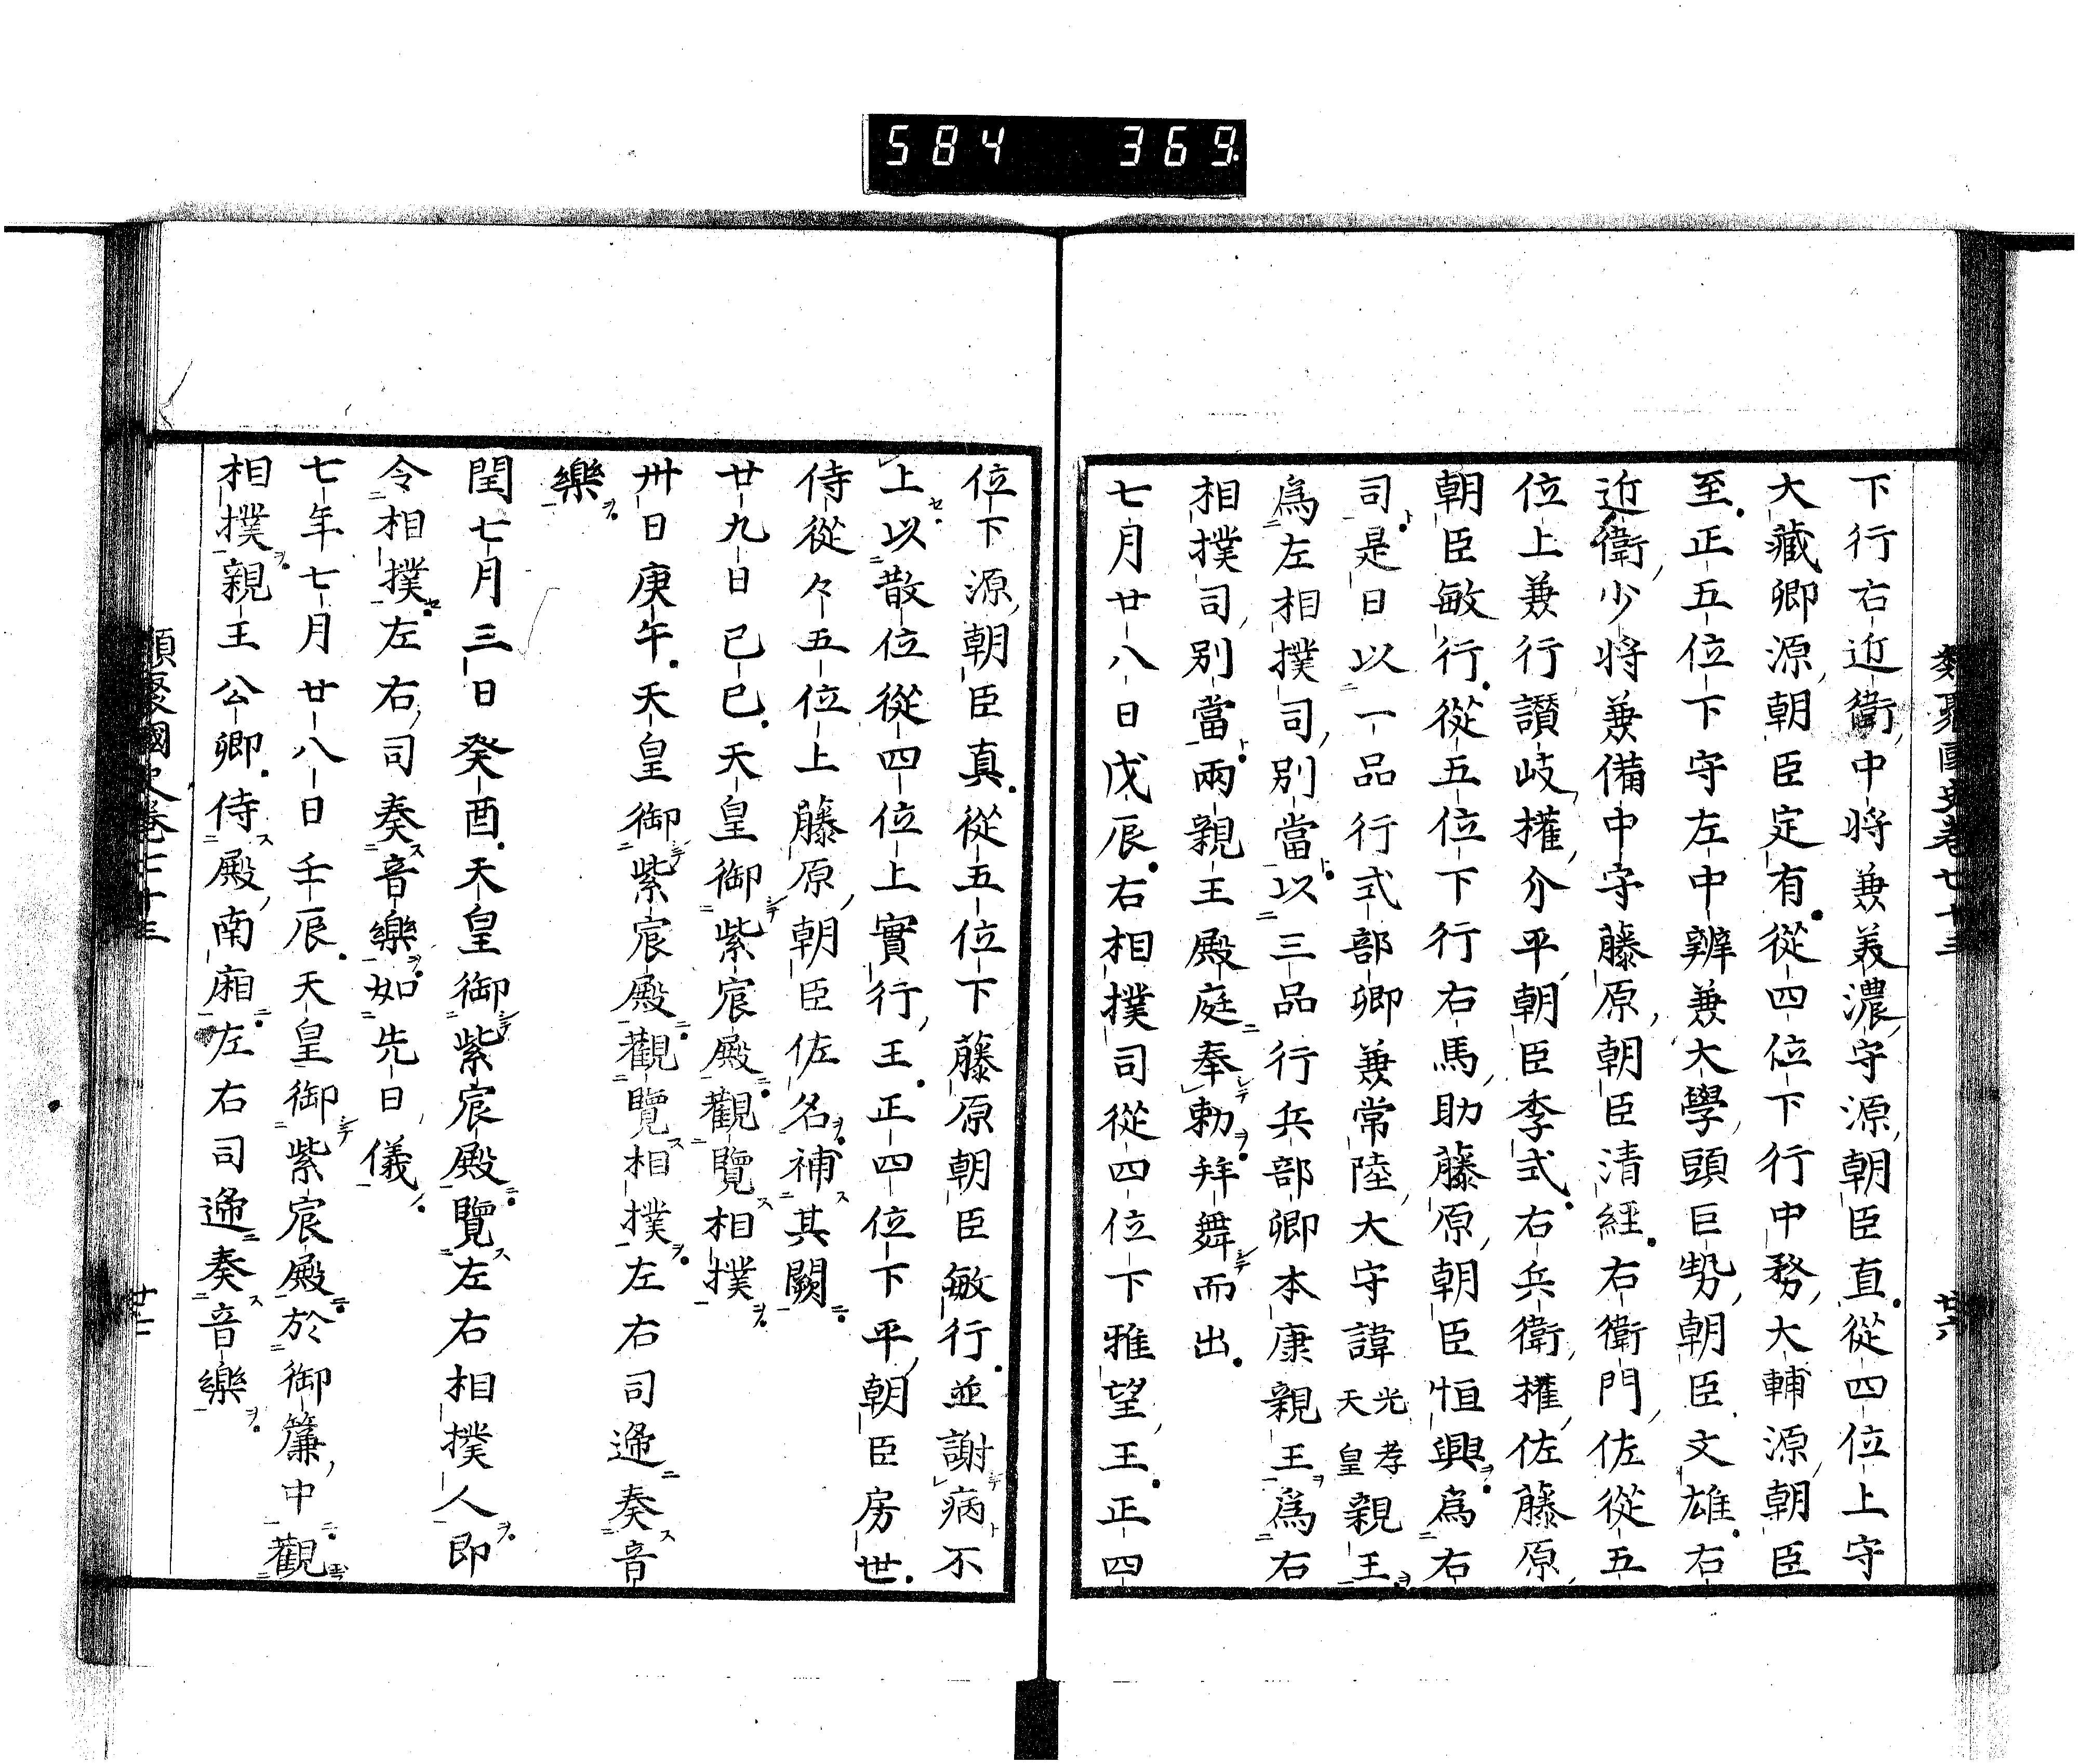 584 369
類聚國史卷七十三 廿六
下行右近衛中将兼美濃守源朝臣直從四位上守
大藏卿源朝臣定有從四位下行中務大輔源朝臣
至正五位下守左中辨兼大學頭巨勢朝臣文雄右
近衛少将兼備中守藤原朝臣清經右衛門佐從五
位上兼行讃岐權介平朝臣季式右兵衛權佐藤原
朝臣敏行從五位下行右馬助藤原朝臣恒興爲右
司是日以一品行式部卿兼常陸大守諱光孝天皇親王
爲左相撲司別當以三品行兵部卿本康親王爲右
相撲司別當兩親王殿庭奉勅拜舞而出
七月廿八日戊辰右相撲司從四位下雅望王正四
位下源朝臣真從五位下藤原朝臣敏行並謝病不
上以散位從四位上實行王正四位下平朝臣房世
侍從々五位上藤原朝臣佐名補其闕
廿九日已已天皇御紫宸殿觀覽相撲
卅日庚午天皇御紫宸殿觀覽相撲左右司遞奏音
樂
閏七月三日癸酉天皇御紫宸殿覽左右相撲人即
令相撲左右司奏音樂如先日儀
七年七月廿八日壬辰天皇御紫宸殿於御簾中觀
相撲親王公卿侍殿南廂左右司遞奏音樂
類聚國史卷七十三